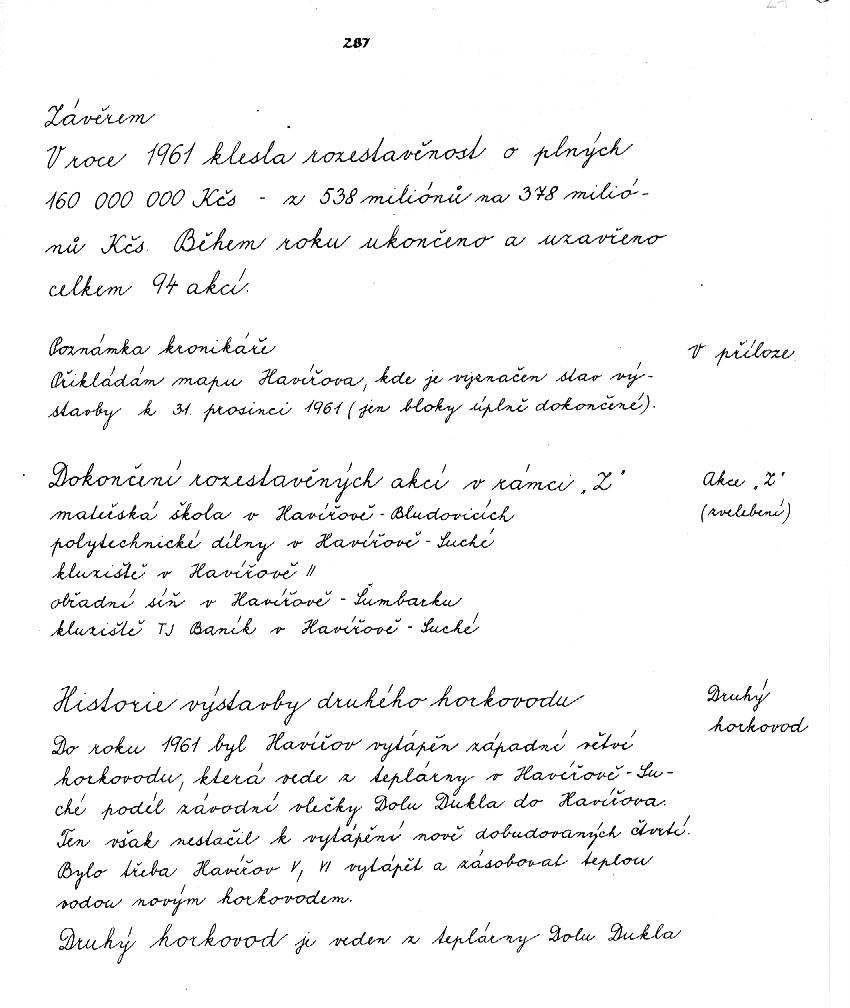 287
Závěrem
V roce 1961 klesla rozestavěnost o plných
160 000 000 Kčs - z 538 miliónů na 378 milió-
nů Kčs. Během roku ukončeno a uzavřeno
celkem 94 akcí.
Poznámka kronikáře
V příloze
Přikládám mapu Havířova, kde je vyznačen stav vý-
stavby k 31. prosinci 1961 (jen bloky úplně dokončené).
Dokončení rozestavěných akcí v rámci „Z"
Akce „Z"
mateřská škola v Havířově - Bludovicích
(zvelebení)
polytechnické dílny v Havířově - Suché
kluziště v Havířově II
obřadní síň v Havířově - Šumbarku
kluziště TJ Baník v Havířově - Suché
Historie výstavby druhého horkovodu
Druhý
horkovod
Do roku 1961 byl Havířov vytápěn západní větví
horkovodu, která vede z teplárny v Havířově - Su-
ché podél závodní vlečky Dolu Dukla do Havířova.
Ten však nestačil k vytápění nově dobudovaných čtvrtí.
Bylo třeba Havířov V, VI vytápět a zásobovat teplou
vodou novým horkovodem.
Druhý horkovod je veden z teplárny Dolu Dukla